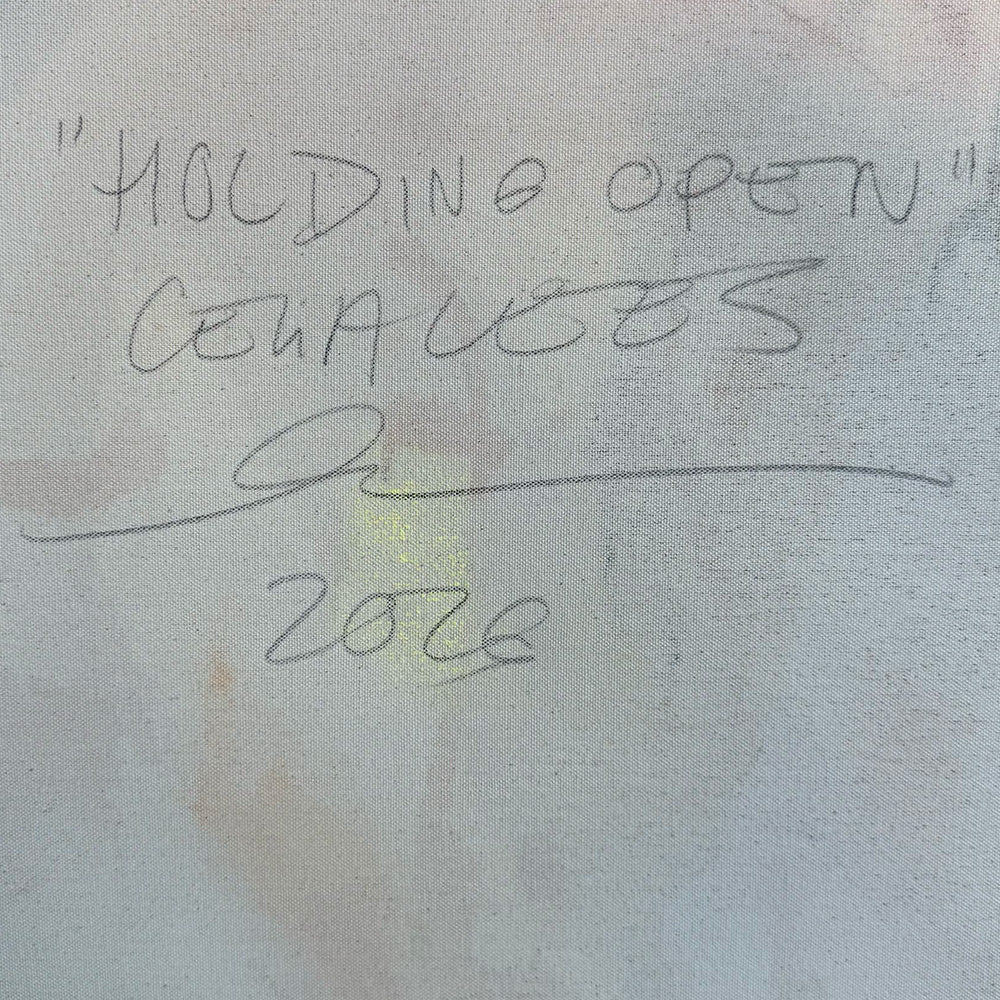 "HOLDING OPEN"
CEHALEES
2026